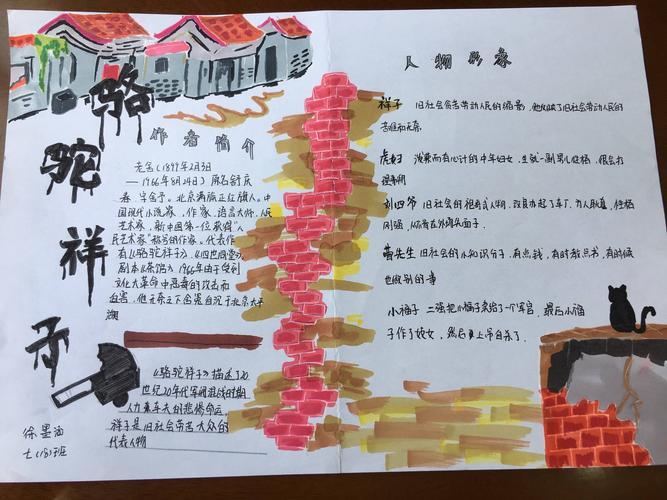 骆驼祥子
作者简介
老舍(1899年2月3日
—1966年8月24日)原名舒庆
春,字舍予。北京满族正红旗人。中
国现代小说家,作家,语言大师,人民
艺术家,新中国第一位获得"人
民艺术家"称号的作家。代表作
有《骆驼祥子》,《四世同堂》
剧本《茶馆》1966年由于受到
文化大革命中恶毒的攻击而
自沉于北京太平
湖
《骆驼祥子》描述了20
世纪20年代军阀混战时期
人力车夫的悲惨命运。
祥子是旧社会劳苦大众的
代表人物
徐墨
七(18)班
人物形象
祥子 旧社会贫苦劳动人民的缩影,他反映了旧社会劳动人民的
虎妞 泼辣而有心计的中年妇女,生就一副男儿性格,很会打
理事物
刘四爷 旧社会的很有式人物,改良办起了车厂,为人耿直,性格
刚强,从不肯在外场失面子
曹先生 旧社会的小知识分子,有点钱,有时教点书,有时候
也做别的事
小福子 二强把小福子卖给了一个军官,最后小福
子作了妓女,然后上吊自杀了